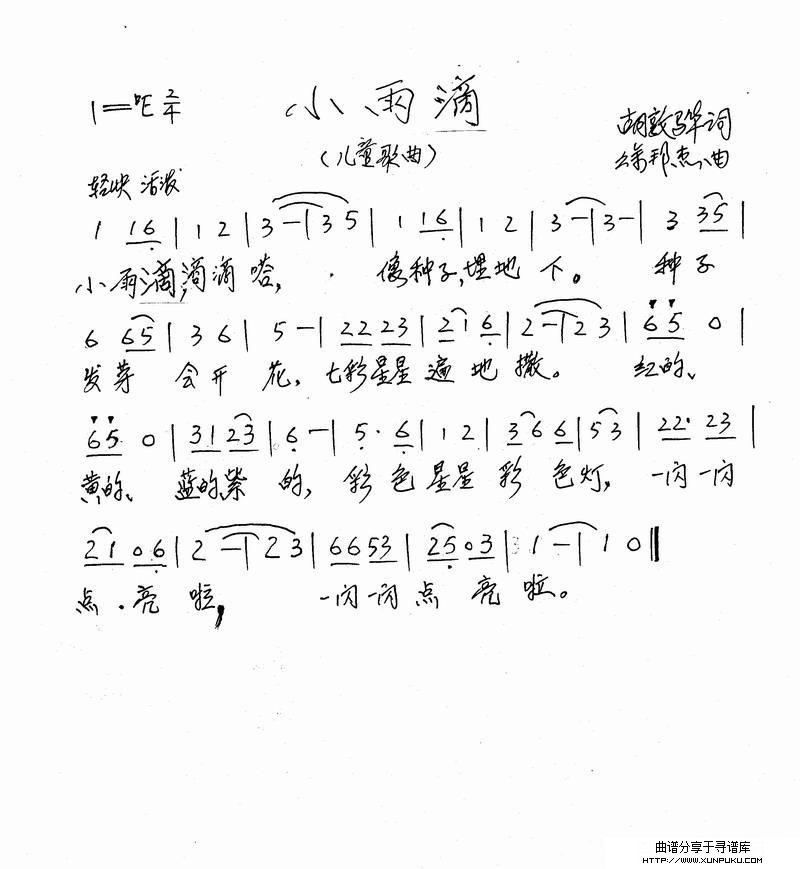 小雨滴
1=♭E 2/4
(儿童歌曲)
胡敦骅词
徐邦杰曲
轻快 活泼
1 16 | 1 2 | 3 — | 3 5 | 1 16 | 1 2 | 3 — | 3 — | 3 35 |
小雨滴,滴滴嗒, 像种子,埋地下。 种子
6 65 | 3 6 | 5 — | 22 23 | 21 6 | 2 — | 2 3 | 65 0 |
发芽 会开花,七彩星星遍地撒。 红的、
65 0 | 31 23 | 6 — | 5· 6 | 1 2 | 36 6 | 53 | 22· 23 |
黄的、蓝的紫的,彩色星星彩色灯,一闪一闪
21 06 | 2 — | 2 3 | 66 53 | 25 03 | 1 — | 1 0 ‖
点·亮啦, 一闪一闪点亮啦。
曲谱分享于寻谱库
HTTP://WWW.XUNPUKU.COM